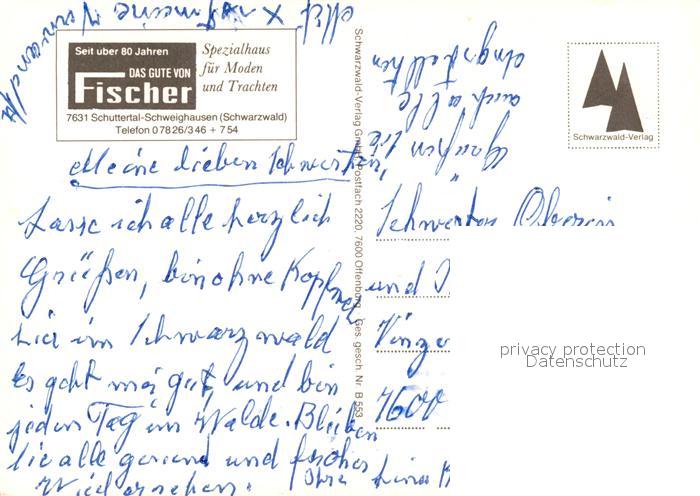 Seit über 80 Jahren
DAS GUTE VON
Fischer
Spezialhaus
für Moden
und Trachten
7631 Schuttertal-Schweighausen (Schwarzwald)
Telefon 0 78 26/3 46 + 7 54
Meine lieben Schwestern
Lasse ich alle herzlich
Grüßen, bin ohne
hier im Schwarzwald
Es geht mir gut, und bin
jeden Tag im Walde. Bleiben
Sie alle gesund und frohes
Wiedersehen. Ihre
Schwarzwald-Verlag GmbH, Postfach 2220, 7600 Offenburg Ges. gesch. Nr. B 553
Grüßen Sie
auch alle
Angestellten
Schwarzwald-Verlag
Schwester Oberin
und
7600
privacy protection
Datenschutz